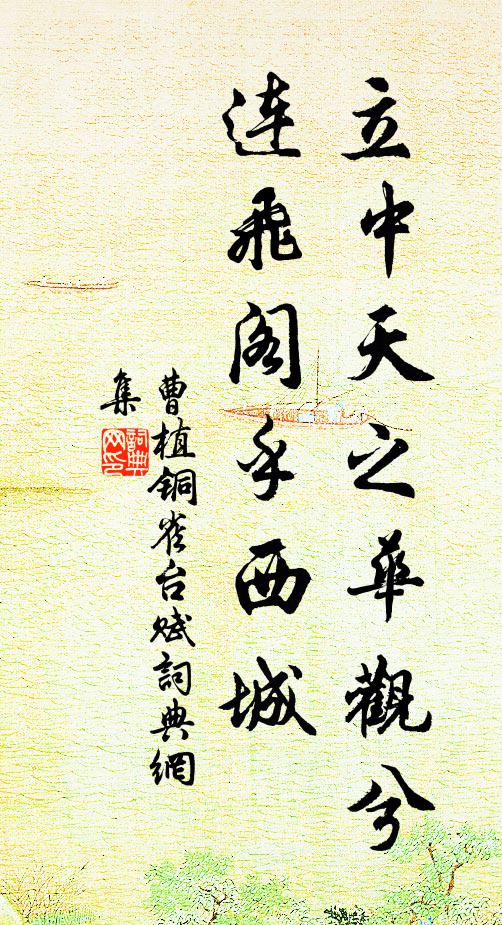 立中天之華觀兮
连飛阁乎西城
曹植铜雀台赋詞典網
集
詞典網印